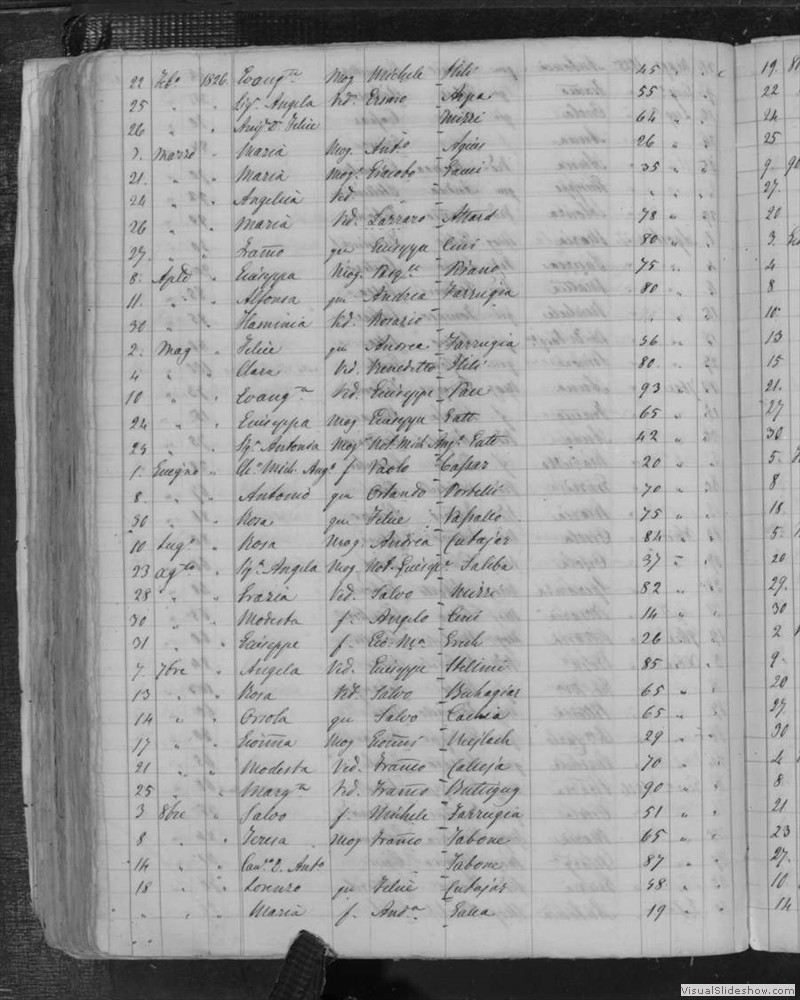 22 Feb.o 1826 Evang.ta Mog Michele Stili 45 " " 19
25 " Sig.a Angela Vid. Ersaio Arpa 55 " 22
26 " Felice Mizzi 64 " 24
Marzo " Maria Mog. Ant.o Agius 26 " 25
21. " " Maria Mog. Giacobo 35 " 9
24 " " Angelica Vid. " " " 27.
26 " " Maria Vid. Lazzaro Attard 78 " 20
27. " qu Giuseppe Cini 80 " 3.
8. Aple " Giuseppa Mog. 75 " 4
11. " " Alfonsa qu Andrea Farrugia 80 " 8
30 " " Flaminia Vid. Rosario " " 10
2. Mag " Felice qu Andrea Farrugia 56 " 13
4 " " Clara Vid. Benedetto Stili 80. " 15
10 " " Evang.ta Vid. Giuseppe Pace 93 " 21.
24 " " Giuseppa Mog Giuseppe Gatt 65 " 27
25 " " Sig.a Antonia Mog Not. Mich. Ang.o Gatt 42 " 30
1. Giugno " Mich. Ang.o f. Paolo Cassar 20 " 5.
8. " " Antonio qu Orlando Portelli 70 " 8
30 " " Rosa qu Felice Vassallo 75 " 18
10 Lug.o " Rosa Mog. Andrea Cutajar 84 " 5.
23 Ag.to " Sig.a Angela Mog Not. Giusep.e Saliba 37 " 20
28 " " Grazia Vid. Salvo Mizzi 82 " 29.
30 " " Modesta f. Angelo Cini 14 " 30
31 " " Giuseppe f. Gio. Ma. Grech 26 " 2
7. 7bre " Angela Vid. Giuseppe Stellini 85 " 9.
13 " " Rosa Vid. Salvo Buhagiar 65 " 20
14 " " Orsola qu Salvo Cachia 65 " 27
17 " " Giovna Mog Giovni Mejlach 29 " 30
21 " " Modesta Vid. Franco Calleja 70 " 4
25 " " Marg.ta Vid. Franco Buttigieg 90 " 8.
3 8bre " Salvo f. Michele Farrugia 51 " 21
8 " " Teresa Mog Franco Tabone 65 " 23
14 " " Can.co D. Ant.o Tabone 87 " 27.
18 " " Lorenzo qu Felice Cutajar 58 " 10
" " " Maria f. And.a Galea 19 " 14
VisualSlideshow.com